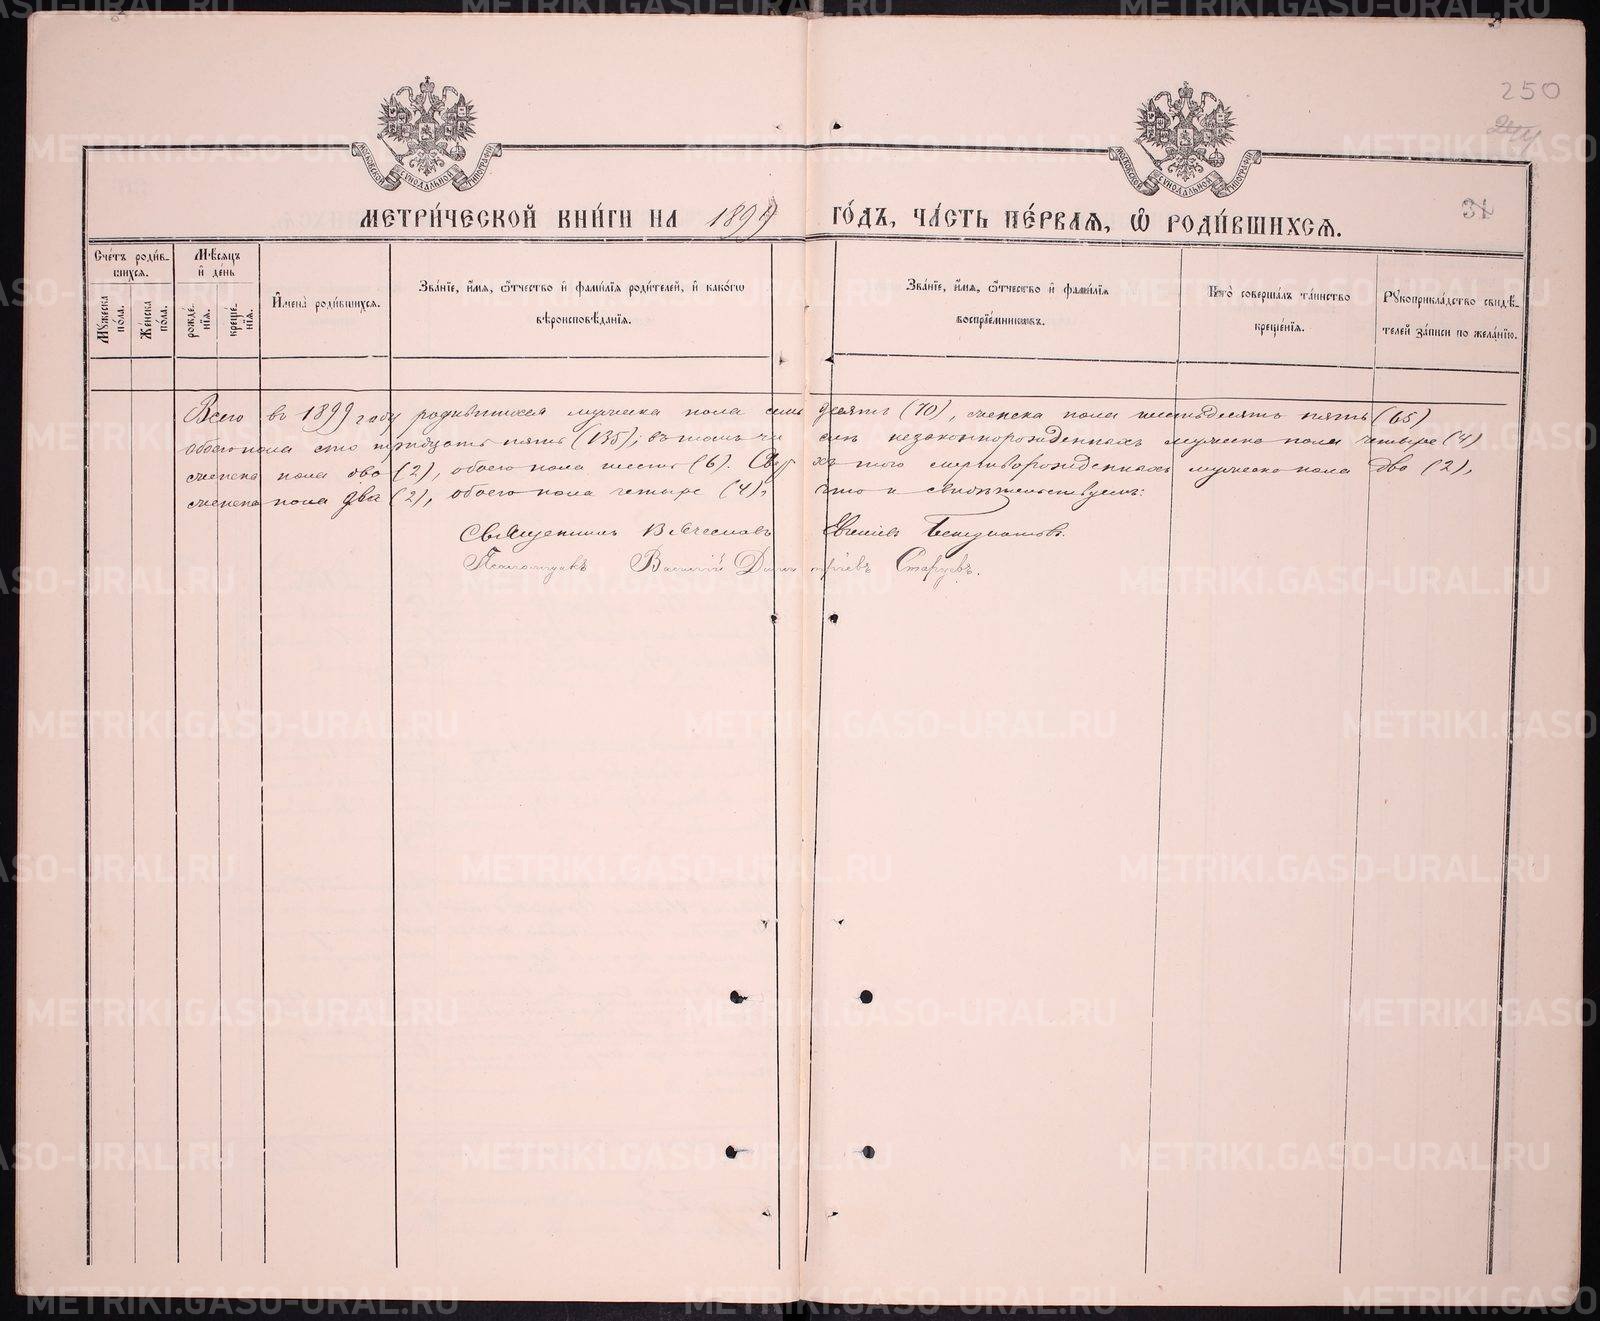 250
МЕТРИ́ЧЕСКОЙ КНИ́ГИ НА 1899 ГО́ДЪ, ЧА́СТЬ ПЕ́РВАЯ, Ѡ҆ РОДИ́ВШИХСЯ.
Сче́тъ роди́в-
шихся.
Мꙋ́жеска по́ла.
Же́нска по́ла.
Мѣ́сяцъ и҆ де́нь
рожде́-
нїя.
креще́-
нїя.
И҆мена̀ роди́вшихся.
Зва́нїе, и҆́мя, ѻ҆́тчество и҆ фамѝлїя роди́телей, и҆ како́гѡ
вѣроисповѣ́данїя.
Зва́нїе, и҆́мя, ѻ҆́тчество и҆ фами́лїя
воспрїе́мниковъ.
Кто̀ соверша́лъ та́инство
креще́нїя.
Рꙋкоприкла́дство свидѣ́-
телей за́писи по жела́нїю.
Всего въ 1899 году родившихся мужеска пола семьдесятъ (70), женска пола шестьдесятъ пять (65)
обоего пола сто тридцать пять (135); въ томъ числѣ незаконнорожденныхъ мужеска пола четыре (4)
женска пола два (2), обоего пола шесть (6). Сверхъ того мертворожденныхъ мужеска пола два (2),
женска пола два (2), обоего пола четыре (4), что и свидѣтельствуемъ:
Священникъ Вячеславъ Евгеніевъ
Псаломщикъ Василій Димитріевъ Старцевъ.
МОСКОВСКОЙ СѴНОДАЛЬНОЙ ТИПОГРАФІИ
МОСКОВСКОЙ СѴНОДАЛЬНОЙ ТИПОГРАФІИ
METRIKI.GASO-URAL.RU